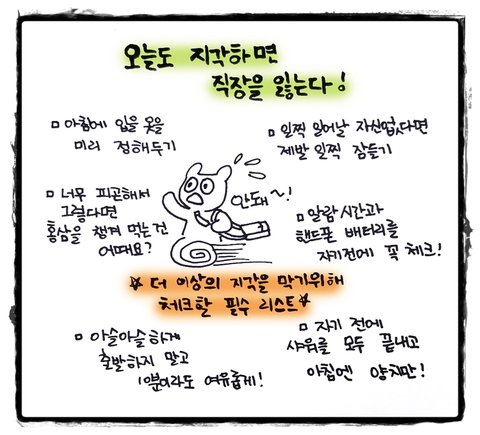 오늘도 지각하면
직장을 잃는다!
□ 아침에 입을 옷을
미리 정해두기
□ 일찍 일어날 자신없다면
제발 일찍 잠들기
□ 너무 피곤해서
그렇다면
홍삼을 챙겨 먹는건
어때요?
안돼~!
□ 알람시간과
핸드폰 배터리를
자기전에 꼭 체크!
☆ 더 이상의 지각을 막기위해
체크할 필수 리스트☆
□ 아슬아슬하게
출발하지 말고
1분이라도 여유롭게!
□ 자기 전에
샤워를 모두 끝내고
아침엔 양치만!